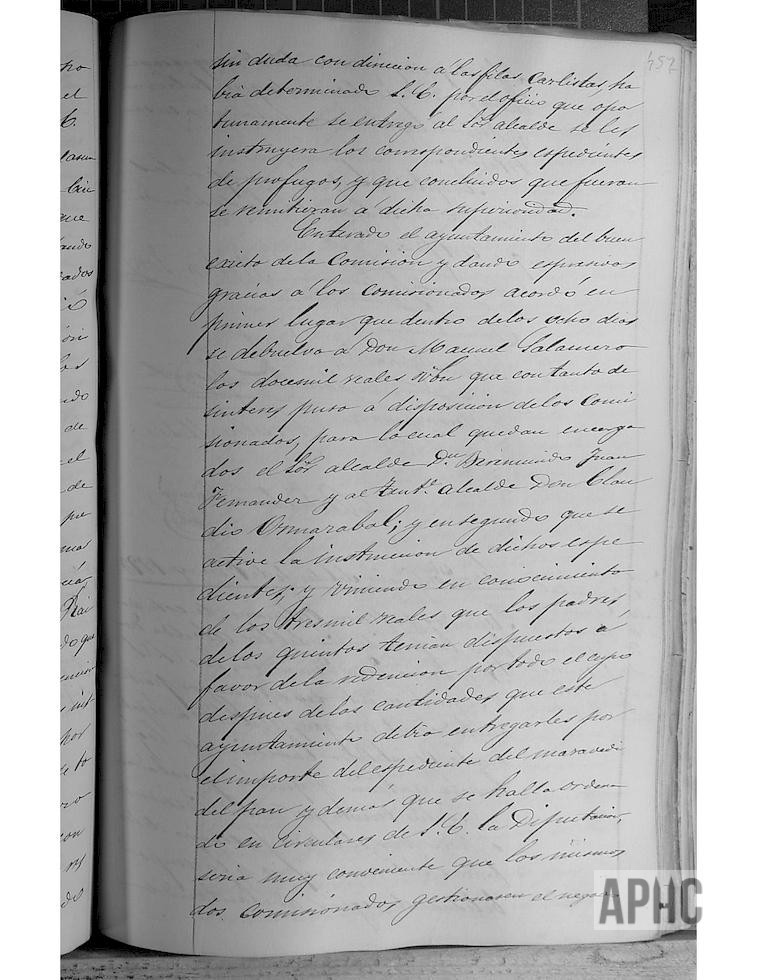 457
sin duda con direcion á las filas Carlistas, ha
bia determinado S. E. por el oficio que opor
tunamente se entregó al Sor. alcalde se les
instruyera los correspondientes espedientes
de profugos, y que concluidos que fueran
se remitieran á dicha superioridad.
Enterado el ayuntamiento del buen
exito de la Comision y dando espresivas
gracias á los comisionados acordó en
primer lugar que dentro de los ocho dias
se debuelva á Don Manuel Salamero
los docemil reales von que con tanto de
sinteres puso á disposicion de los Comi
sionados, para lo cual quedan encarga
dos el Sor. alcalde Dn. Bermundo Juan
Fernandez y al tente. alcalde Don Clau
dio Ormazabal; y en segundo que se
active la instrucion de dichos espe
dientes; y viniendo en conocimiento
de los tresmil reales que los padres
de los quintos tenian dispuestos á
favor de la redencion por todo el cupo
despues de las cantidades que este
ayuntamiento debia entregarles por
el importe del espediente del maravedi
del pan y demas que se halla ordena
do en circulares de S. E. la Diputacion,
seria muy conveniente que los mismos
dos comisionados gestionasen el
APHC